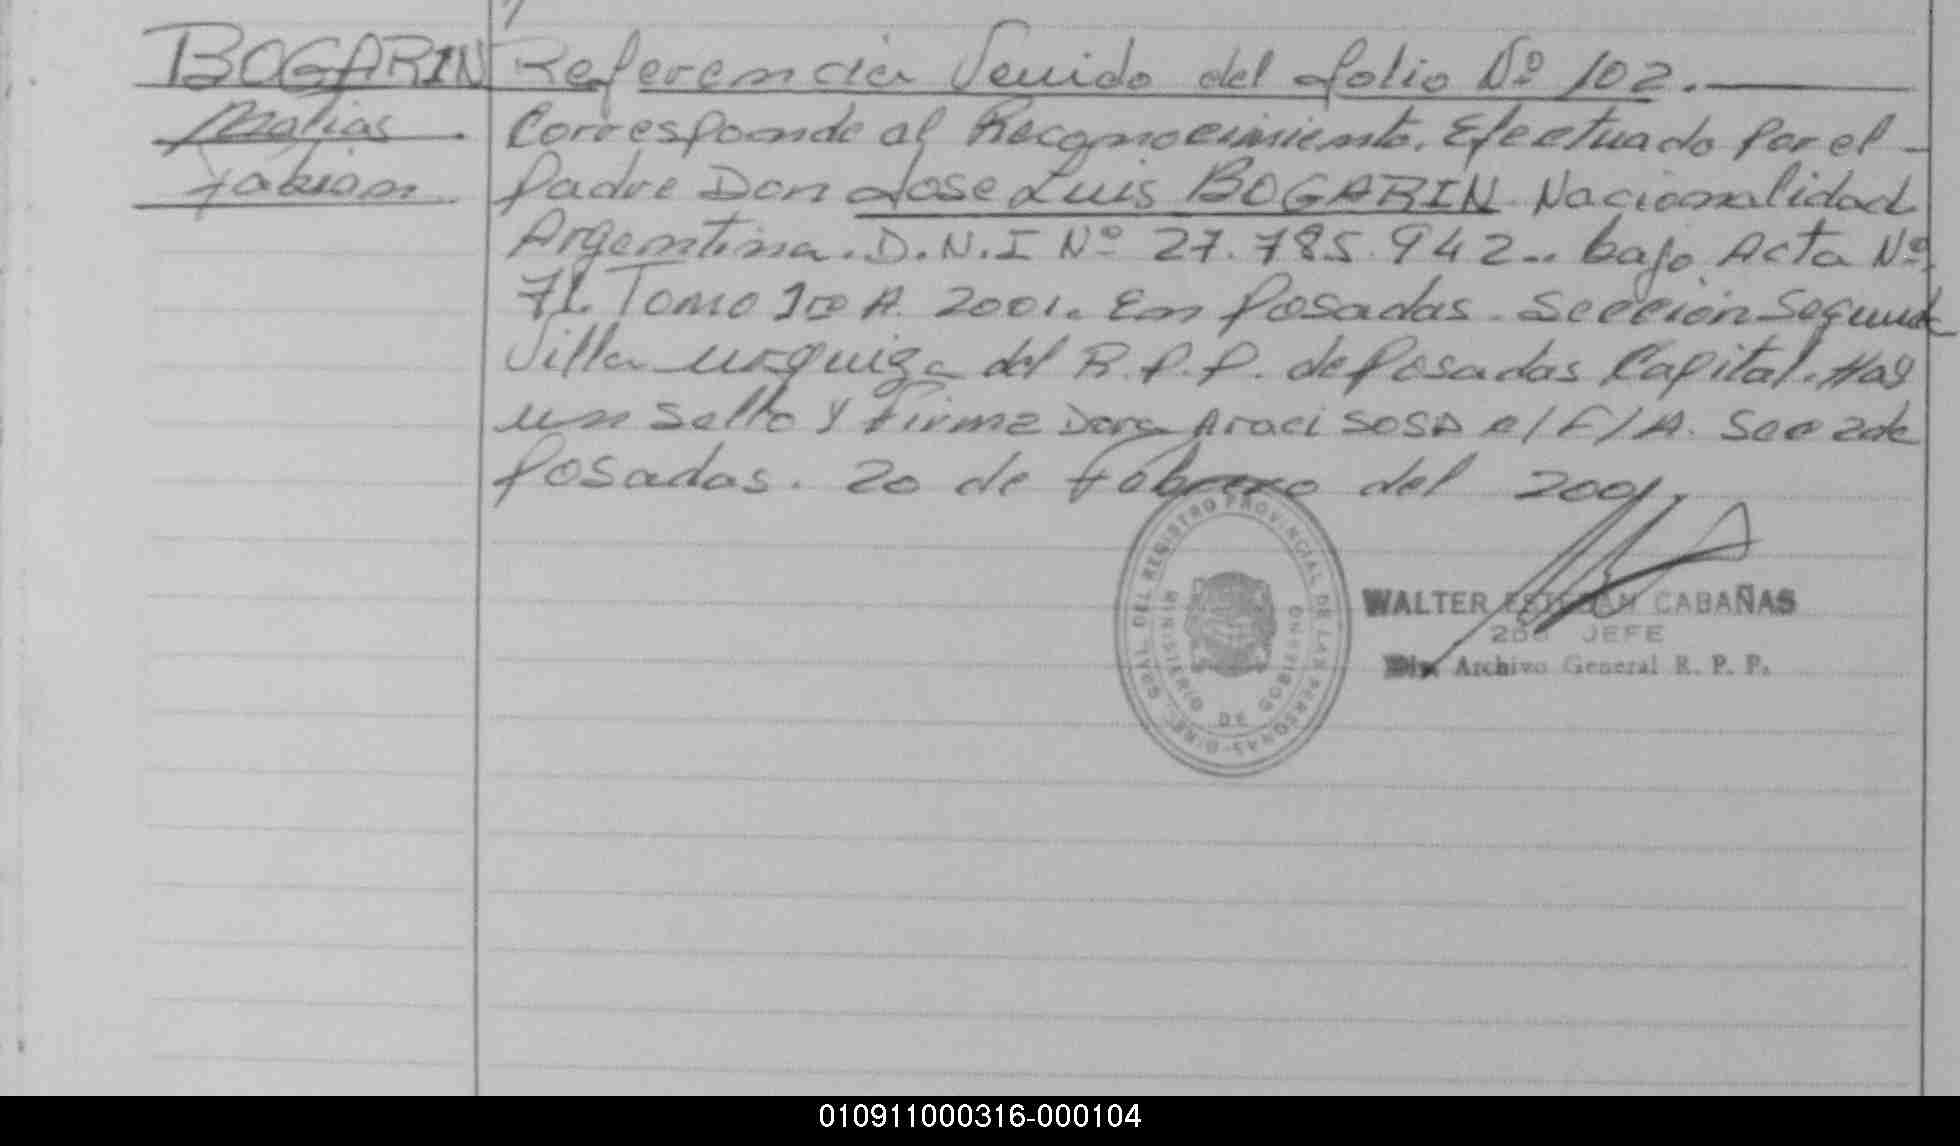 BOGARIN Referencia Venido del folio Nº 102.
Matias Corresponde al Reconocimiento. Efectuado por el
Fabian Padre Don Jose Luis BOGARIN Nacionalidad
Argentina. D.N.I Nº 27.785.942.. bajo Acta Nº
71. Tomo 1ro A. 2001. En Posadas. Sección Segunda
Villa urquiza del R.P.P. de Posadas Capital. Hay
un Sello y Firma Dora Araci SOSA e/F/A. Sec 2da de
Posadas. 20 de Febrero del 2001.
DIREC. GRAL. DEL REGISTRO PROVINCIAL DE LAS PERSONAS
MINISTERIO DE GOBIERNO
WALTER ESTEBAN CABAÑAS
2do JEFE
Archivo General R. P. P.
010911000316-000104